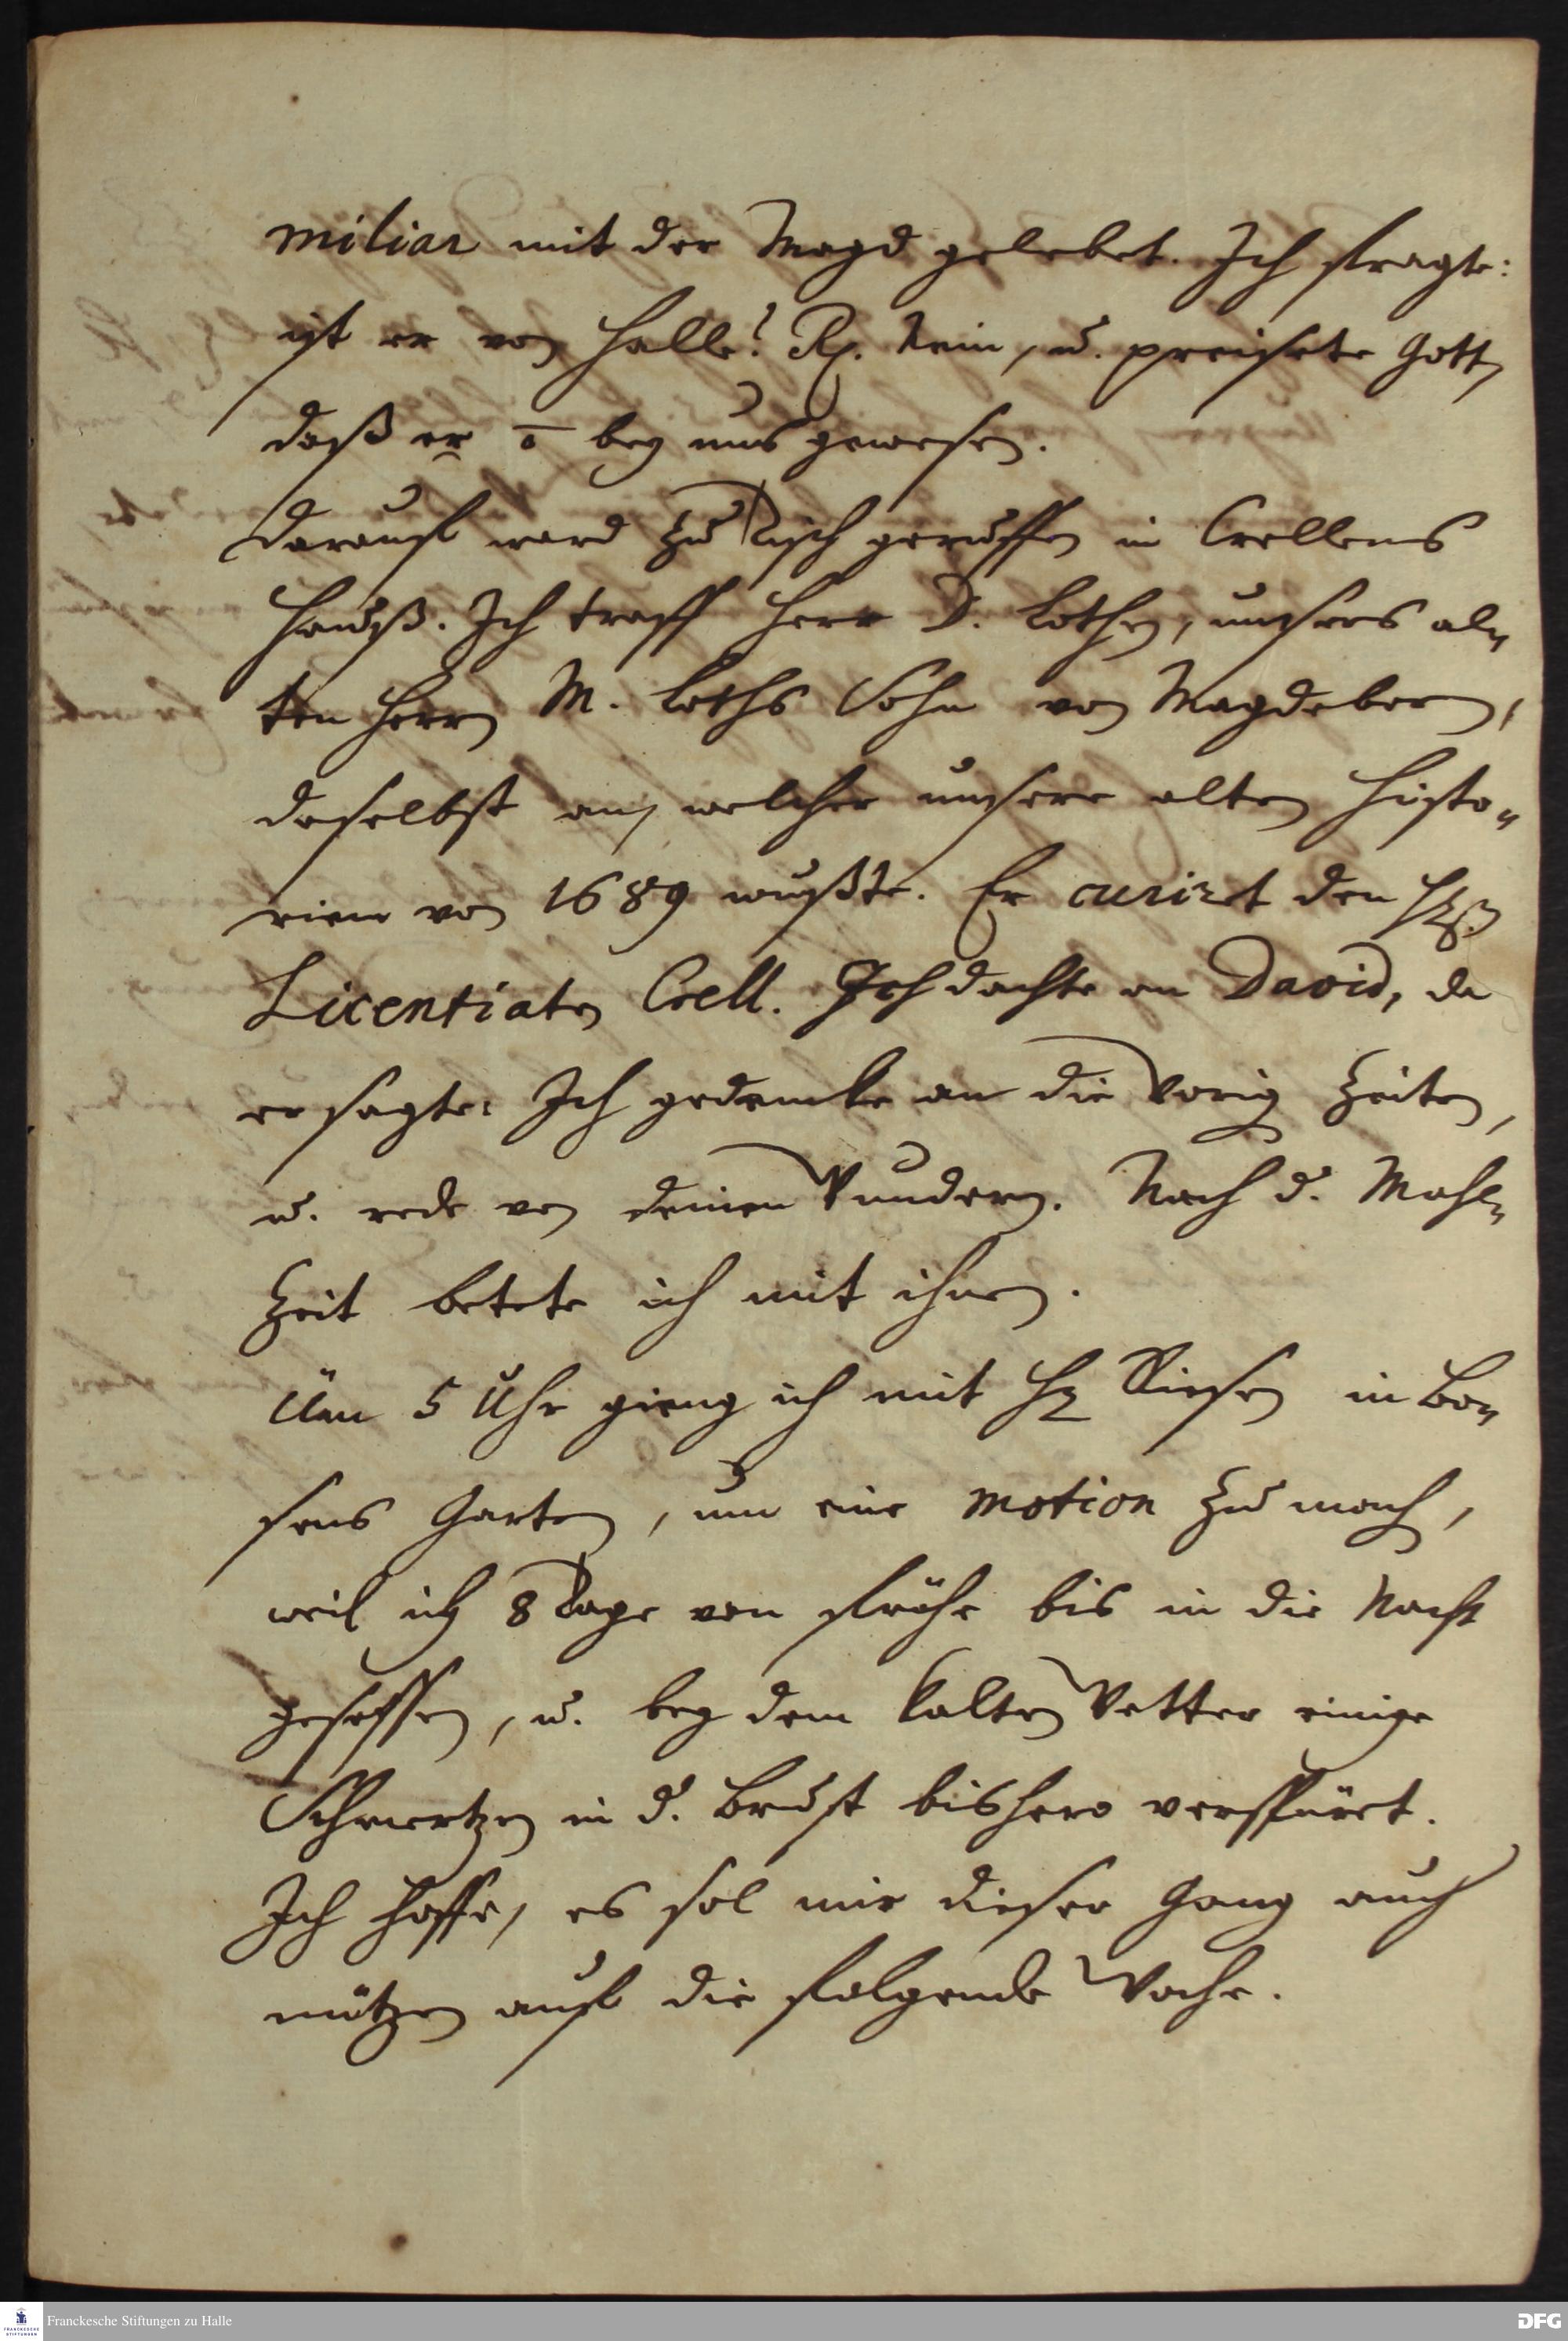 miliar mit der Magd gelebet. Ich fragte:
ist er von Halle? Rp. Nein, u. preisete Gott,
daß er ō bey uns gewesen.
Darauf ward zu Tisch geruffen in Crellens
Hauß. Ich traff Herr D. Lothen, unsers al-
ten Herrn M. Loths Sohn von Magdeborn,
daselbst an, welcher unsere alten Histo-
rien von 1689 wußte. Er curiret den
Licentiaten Crell. Ich dachte an David, da
er sagte: Ich gedencke an die Vorig Zeiten,
u. rede von deinen Wundern. Nach d. Mahl-
Zeit betete ich mit ihnen.
Üm 5 Uhr gieng ich mit H. Riesen in Bo-
sens Garten, um eine motion zu mach,
weil ich 8 Tage von frühe bis in die Nacht
gesessen, u. bey dem kalten Wetter einige
Schmertzen in d. Brust bishero verspüret.
Ich hoffe, es sol mir dieser Gang auch
nützen auf die folgende Woche.
Franckesche Stiftungen zu Halle
DFG